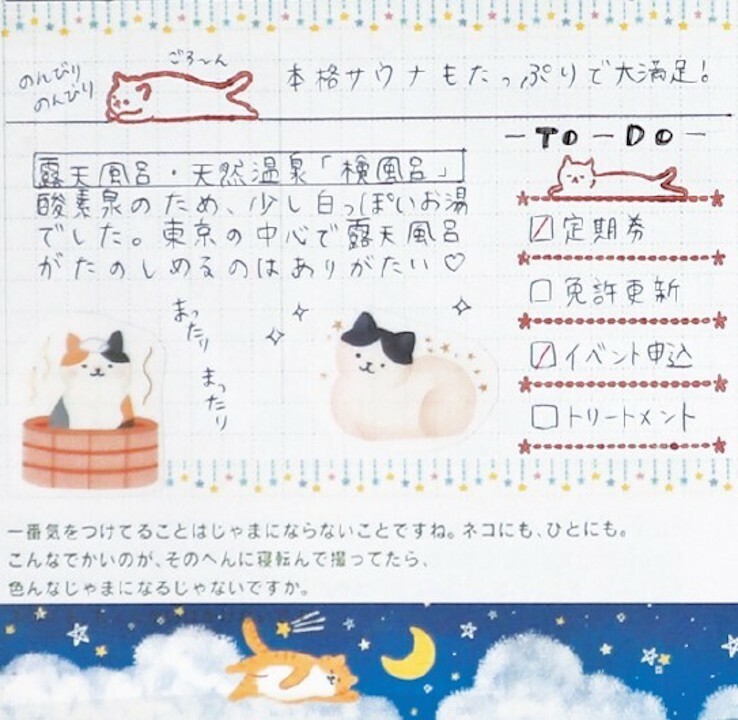 のんびり
のんびり
ごろ〜ん
本格サウナもたっぷりで大満足!
露天風呂・天然温泉「檜風呂」
酸素泉のため、少し白っぽいお湯
でした。東京の中心で露天風呂
がたのしめるのはありがたい♡
まったり
まったり
-TO-DO-
定期券
免許更新
イベント申込
トリートメント
一番気をつけてることはじゃまにならないことですね。ネコにも、ひとにも。
こんなでかいのが、そのへんに寝転んで撮ってたら、
色んなじゃまになるじゃないですか。